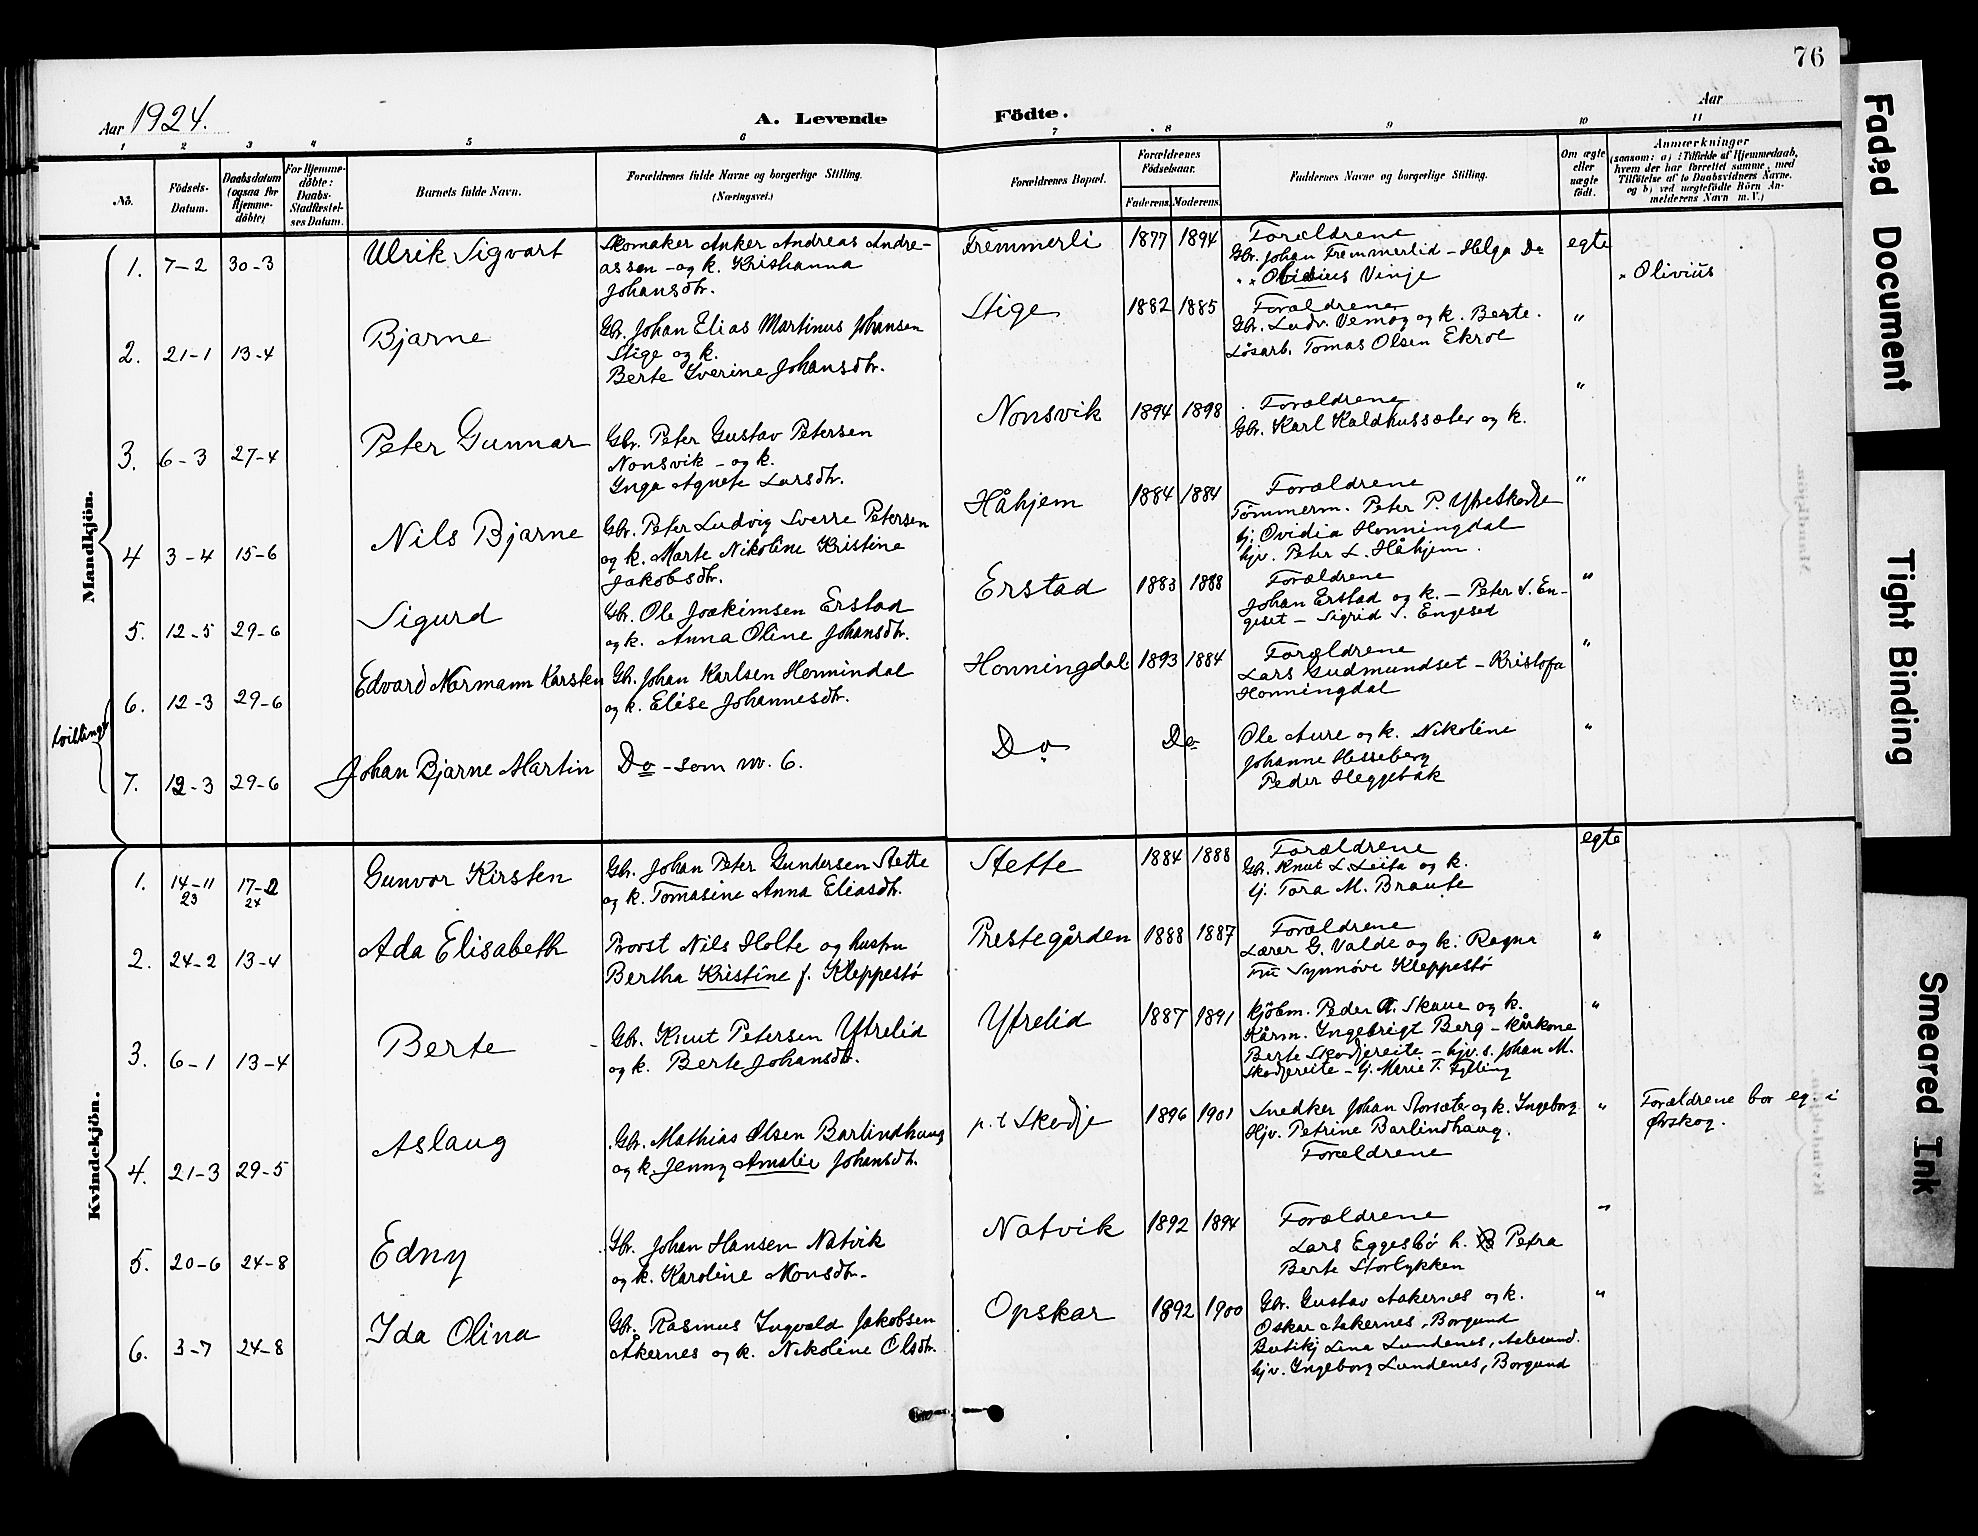 76
Aar 1924.
A. Levende Födte.
Aar
1 2 3 4 5 6 7 8 9 10 11
No.
Födsels-Datum.
Daabsdatum (ogsaa for Hjemme-döbte)
For Hjemme-döbte: Daabs-Stadfæstel-ses Datum.
Barnets fulde Navn.
Forældrenes fulde Navne og borgerlige Stilling.
(Næringsvei.)
Forældrenes Bopæl.
Forældrenes Födselsaar.
Faderens. Moderens.
Faddernes Navne og borgerlige Stilling.
Om ægte eller uægte födt.
Anmærkninger
(saasom: a) i Tilfælde af Hjemmedaab, hvem der har forrettet samme, med Tilföielse af to Daabsvidners Navne. og b) ved uægtefödte Börn Anmelderens Navn m. V.)
Mandkjön.
1. 7-2 30-3 Ulrik Sigvart
Skomaker Anker Andreas Andre-
assen - og k. Kristianna
Johansdtr.
Fremmerli 1877 1894
Forældrene
Gbr. Johan Fremmerlid - Helga Do
" " Olivius Vinje
egte
" Olivius
2. 21-1 13-4 Bjarne
Gbr. Johan Elias Martinus Johansen
Stige og k.
Berte Iverine Johansdtr.
Stige 1882 1885
Forældrene
Gbr. Ludv. Vemøy og k. Berte.
Løsarb. Tomas Olsen Ekrol
"
3. 6-3 27-4 Peter Gunnar
Gbr. Peter Gustav Petersen
Nonsvik - og k.
Inga Agnete Larsdtr.
Nonsvik 1894 1898
Forældrene
Gbr. Karl Kaldhussæter og k.
"
4 3-4 15-6 Nils Bjarne
Gbr. Peter Ludvig Sverre Petersen
og k. Marte Nikoline Kristine
Jakobsdtr.
Håhjem 1884 1884
Forældrene
Tömmerm. Peter P. Ytreskodje
tj. Ovidia Honningdal
hjv. Peter L. Håhjem.
"
5. 12-5 29-6 Sigurd
Gbr. Ole Joakimsen Erstad
og k. Anna Oline Johansdtr.
Erstad 1883 1888
Forældrene
Johan Erstad og k. - Peter S. En-
geset - Sigrid S. Engesed
"
tvillinger
6. 12-3 29-6 Edvard Normann Karsten
Gbr. Johan Karlsen Honnindal
og k. Elise Johannesdtr.
Honningdal 1893 1884
Forældrene
Lars Gudmundset - Kristofa
Honningdal
"
7. 12-3 29-6 Johan Bjarne Martin
Do - som nr. 6.
Do Do
Ole Aure og k. Nikoline
Johanne Hesseberg
Peder Heggebak
"
Kvindekjön.
1. 14-11 23 17-2 24 Gunvor Kirsten
Gbr. Johan Peter Gundersen Stette
og k. Tomasine Anna Eliasdtr.
Stette 1884 1888
Forældrene
Gbr. Knut L. Leita og k.
tj. Tora M. Braute
egte
2. 24-2 13-4 Ada Elisabeth
Provst Nils Holte og hustru
Bertha Kristine f. Kleppestö
Prestegården 1888 1887
Forældrene
Lærer G. Valde og k. Ragna
Fru Synnöve Kleppestö
"
3. 6-1 13-4 Berte
Gbr. Knut Petersen Ytrelid
og k. Berte Johansdtr.
Ytrelid 1887 1891
Kjöbm. Peder A. Skaue og k.
Kårm. Ingebrigt Berg - Kårkone
Berte Skodjereite - hjv. s. Johan M.
Skodjereite - tj. Marie T. Fylling
"
4. 21-3 29-5 Aslaug
Gbr. Mathias Olsen Barlindhaug
og k. Jenny Amalie Johansdtr.
p.t Skodje 1896 1901
Snedker Johan Storsæter og k. Ingeborg
Hjv. Petrine Barlindhaug.
Forældrene
"
Forældrene bor eg. i
Ørskog.
5. 20-6 24-8 Edny
Gbr. Johan Hansen Natvik
og k. Karoline Monsdtr.
Natvik 1892 1894
Forældrene
Lars Eggesbö h. Petra
Berte Storlykken
"
6. 3-7 24-8 Ida Olina
Gbr. Rasmus Ingvald Jakobsen
Åkernes og k. Nikoline Olsdtr.
Opskar 1892 1900
Gbr. Gustav Aakernes og k.
Oskar Aakernes, Borgund
Butikj Lina Lundenes, Aalesund.
hjv. Ingeborg Lundenes, Borgund
"
Faded Document
Tight Binding
Smeared Ink